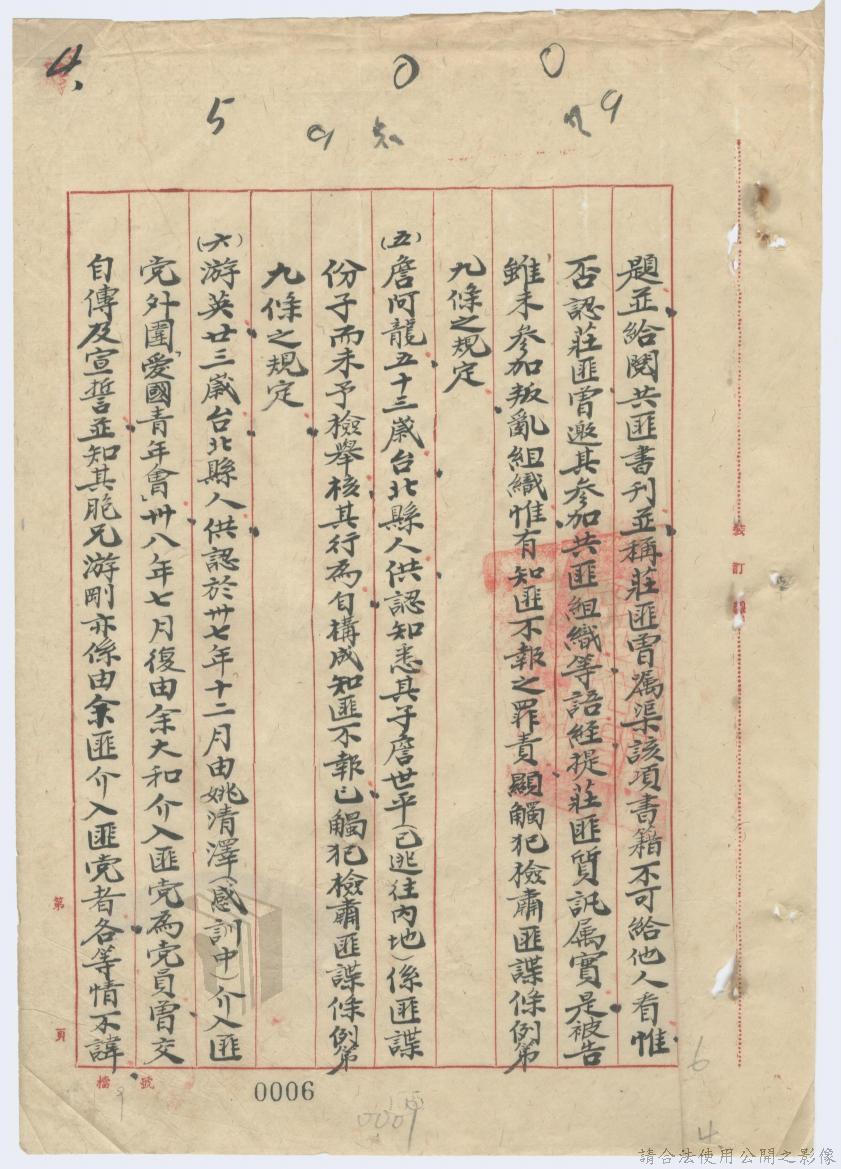 4.
0
0
5
9
9
題並給閱共匪書刊並稱莊匪曾屬渠該項書籍不可給他人看惟
否認莊匪曾邀其參加共匪組織等語經提莊匪質訊属實是被告
雖未參加叛亂組織惟有知匪不報之罪責顯觸犯檢肅匪諜條例第
九條之規定
(五)詹阿龍五十三歲台北縣人供認知悉其子詹世平(已逃往內地)係匪諜
份子而未予檢舉核其行為自構成知匪不報已觸犯檢肅匪諜條例第
九條之規定
(六)游英廿三歲台北縣人供認於卅七年十二月由姚清澤(感訓中)介入匪
党外圍「愛國青年會」卅八年七月復由余大和介入匪党為党員曾交
自傳及宣誓並知其胞兄游剛亦係由余匪介入匪党者各等情不諱
裝訂線
第
頁
檔號
0006
6
4
請合法使用公開之影像